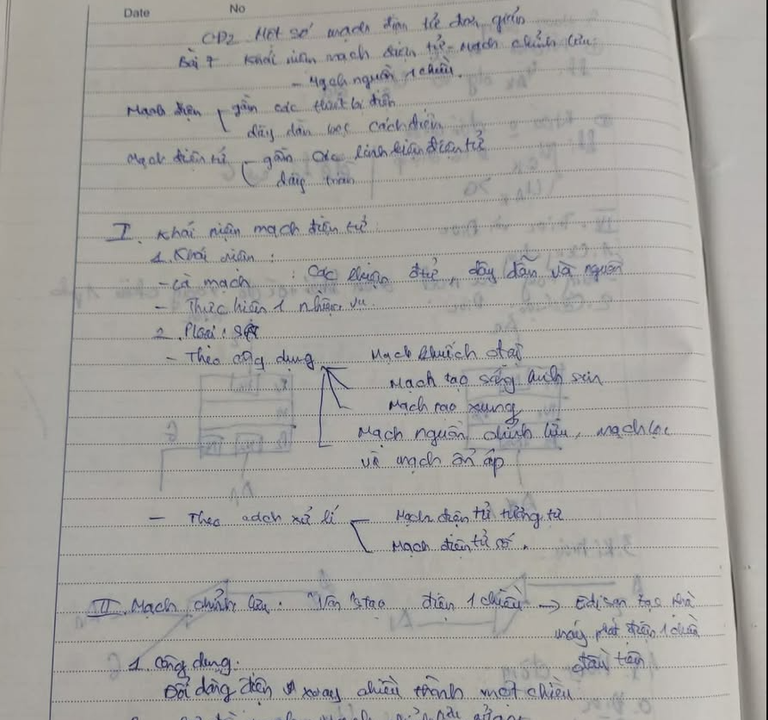 Date No
CĐ2 Một số mạch điện tử đơn giản
Bài 7 Khái niệm mạch điện tử - Mạch chỉnh lưu
- Mạch nguồn 1 chiều.
Mạch điện gắn các thiết bị điện
dây dẫn bọc cách điện
Mạch điện tử gắn các linh kiện điện tử
dây trần
I. Khái niệm mạch điện tử
1. Khái niệm :
- Là mạch các điện tử, dây dẫn và nguồn
- Thực hiện 1 nhiệm vụ
2. Phân
- Theo công dụng Mạch khuếch đại
Mạch tạo sóng hình sin
Mạch tạo xung
Mạch nguồn chỉnh lưu, mạch lọc
và mạch ổn áp
- Theo cách xử lí Mạch điện tử tương tự
Mạch điện tử số.
II. Mạch chỉnh lưu : điện 1 chiều → Edison tạo nhà
máy phát điện 1 chiều
đầu tiên
1. Công dụng.
Đổi dòng điện xoay chiều thành một chiều